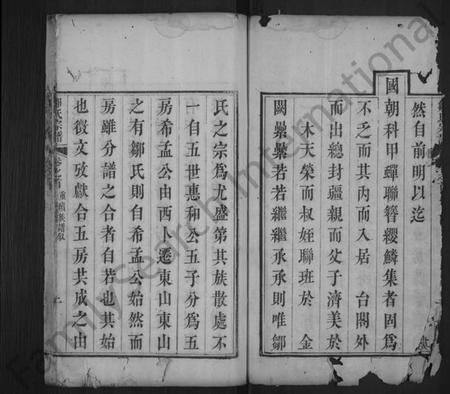 然自前明以迄
國朝科甲蟬聯簪纓鱗集者固爲
不乏而其內而入居　台閣外
而出總封疆親而父子濟美於
木天榮而叔姪聯班於　金
闕纍纍若若繼繼承承則唯鄒
氏之宗爲尤盛第其族散處不
一自五世惠和公五子分爲五
房希孟公由西卜遷東山東山
之有鄒氏則自希孟公始然而
房雖分譜之合者自若也其始
也徵文攷獻合五房共成之由
鄒氏宗譜
重續族譜叙
二
FamilySearch International